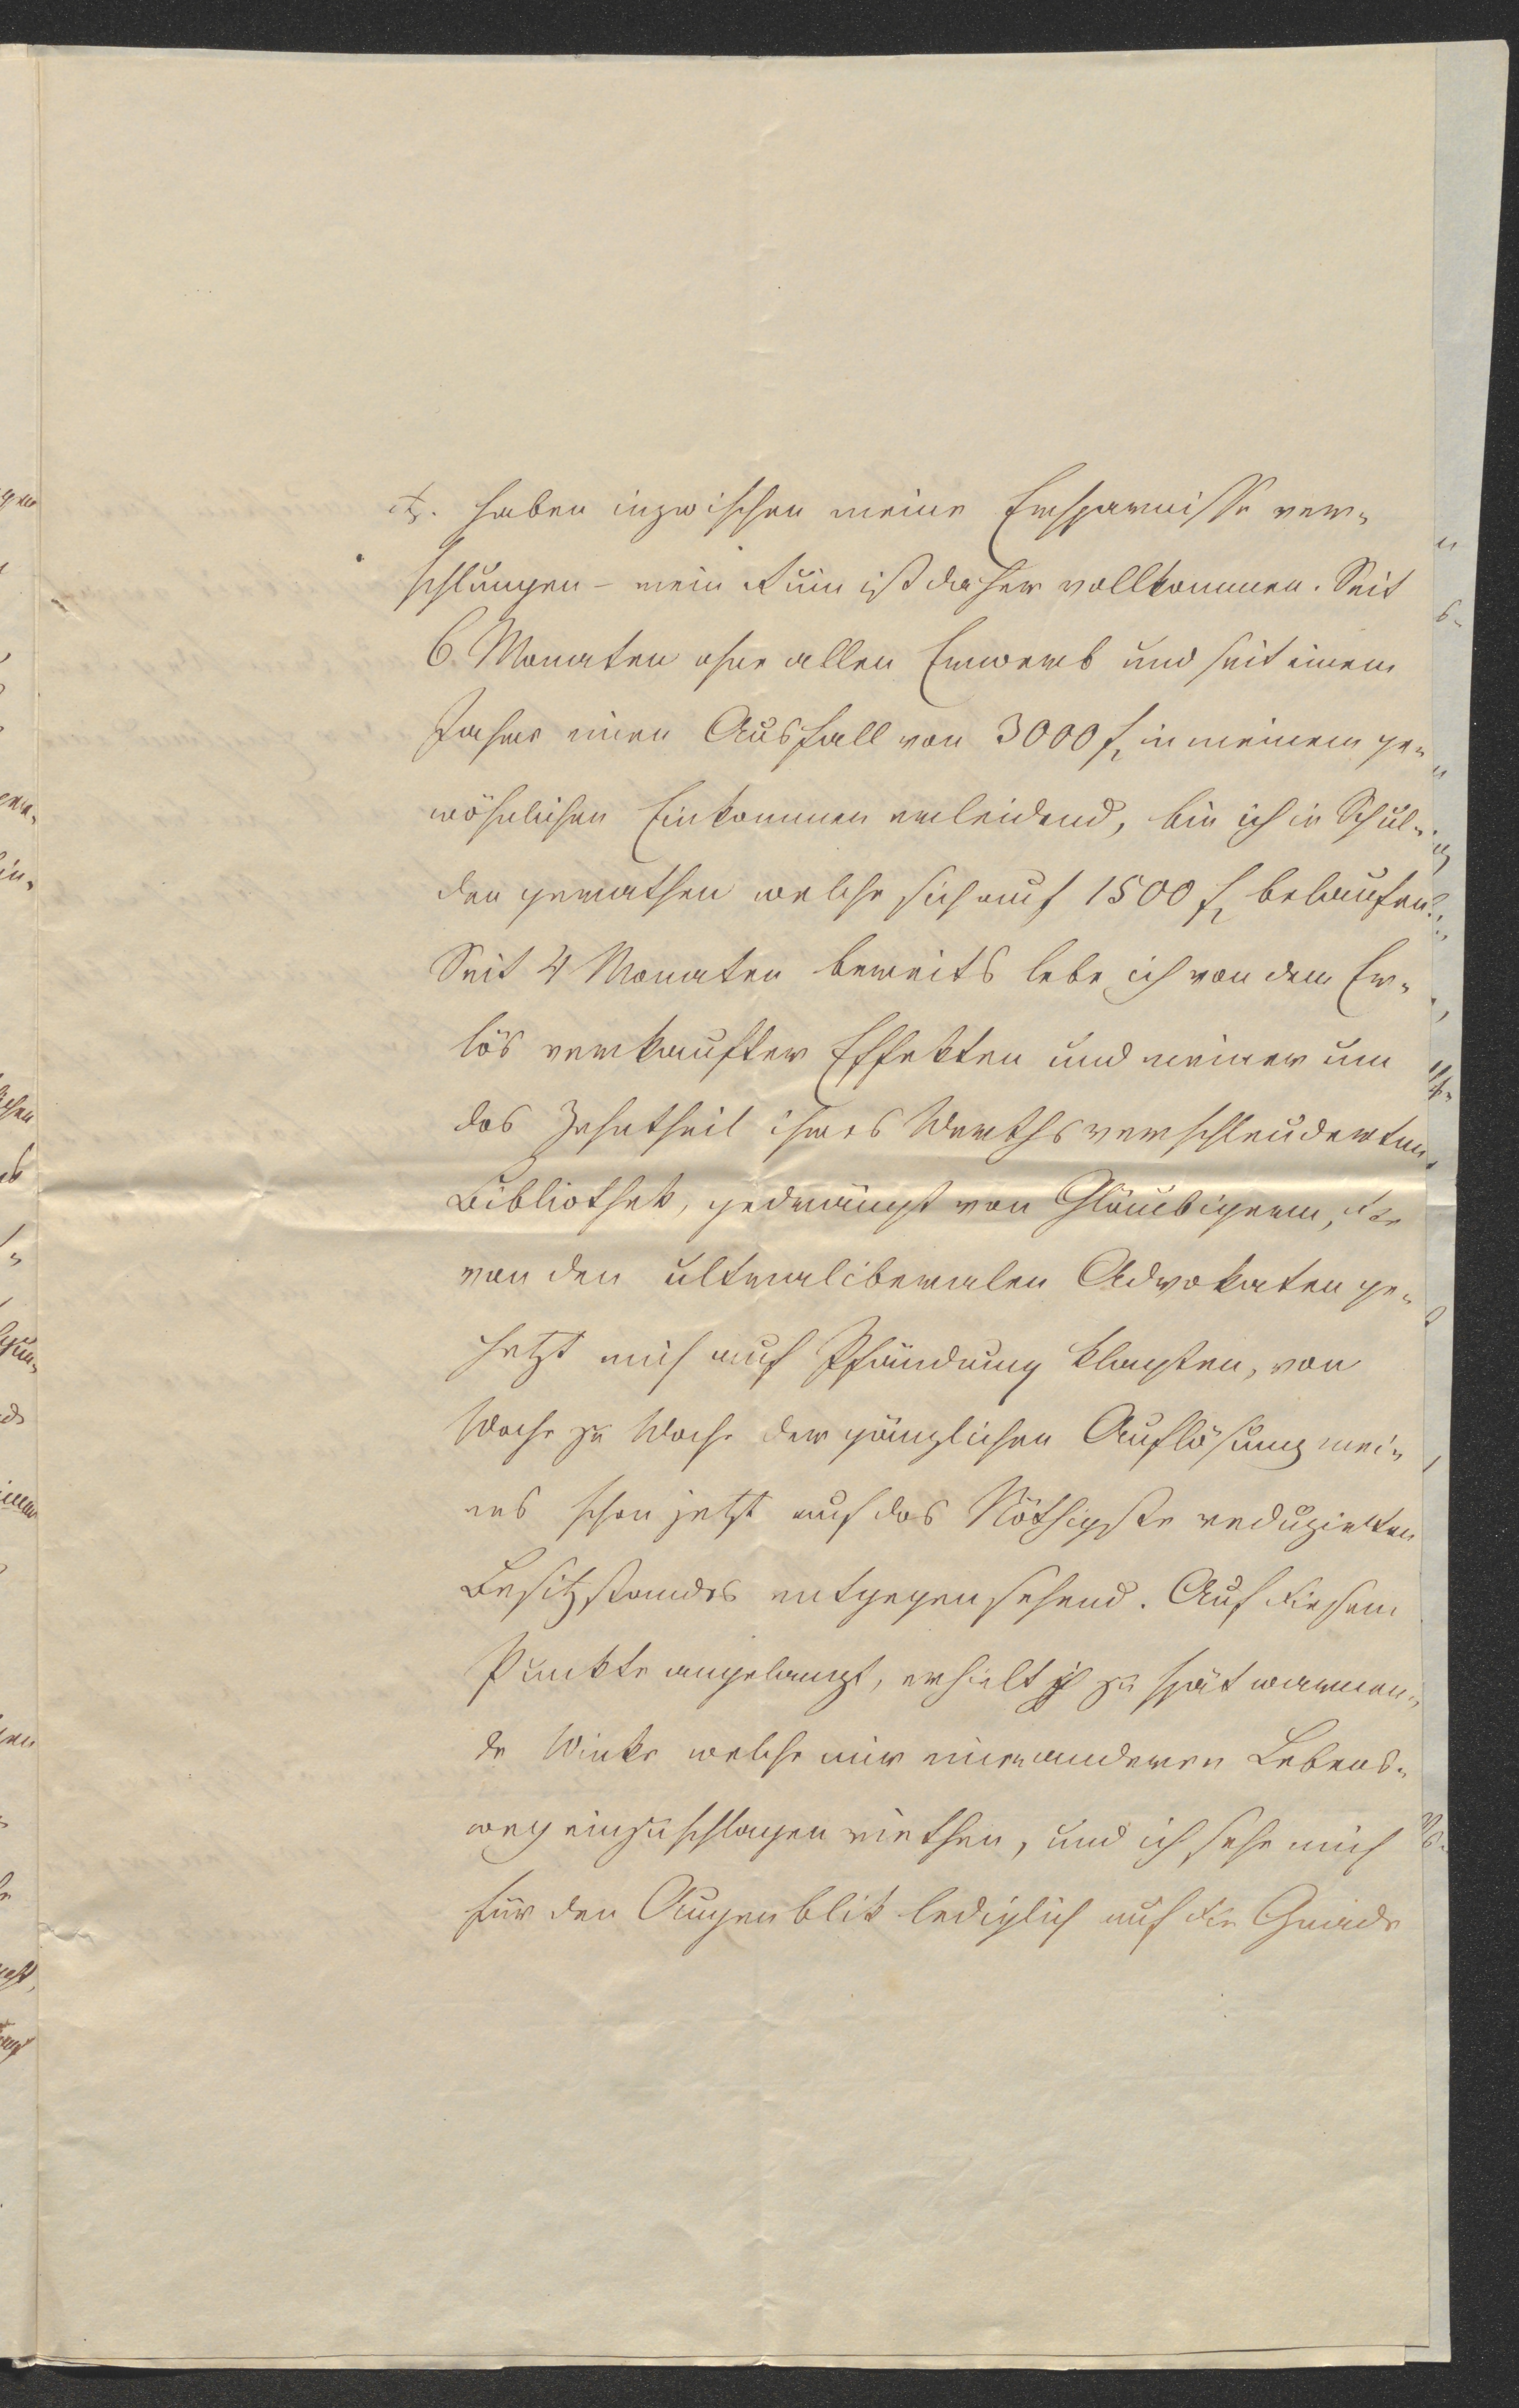 etc. haben inzwischen meine Ersparnisse ver-
schlungen - mein Ruin ist daher vollkommen. Seit
6 Monaten ohne allen Erwerb und seit einem
Jahre einen Ausfall von 3000 f. in meinem ge-
wöhnlichen Einkommen erleidend, bin ich in Schul-
den gerathen welche sich auf 1500 f. belaufen.
Seit 4 Monaten bereits lebe ich von dem Er-
lös verkaufter Effekten und meiner um
das Zehntheil ihres Werths verschleuderten
Bibliothek, gedrängt von Gläubigern, die
von den ultraliberalen Advokaten ge-
hetzt mich auf Pfändung klagten, von
Woche zu Woche der gänzlichen Auflösung mei-
nes schon jetzt auf das Nöthigste reduzirten
Besitzstandes entgegensehend. Auf diesem
Punkte angelangt, erhielt ich zu spät warnen-
de Winke welche mir einen anderen Lebens-
weg einzuschlagen riethen, und ich sehe mich
für den Augenblik lediglich auf die Gnade